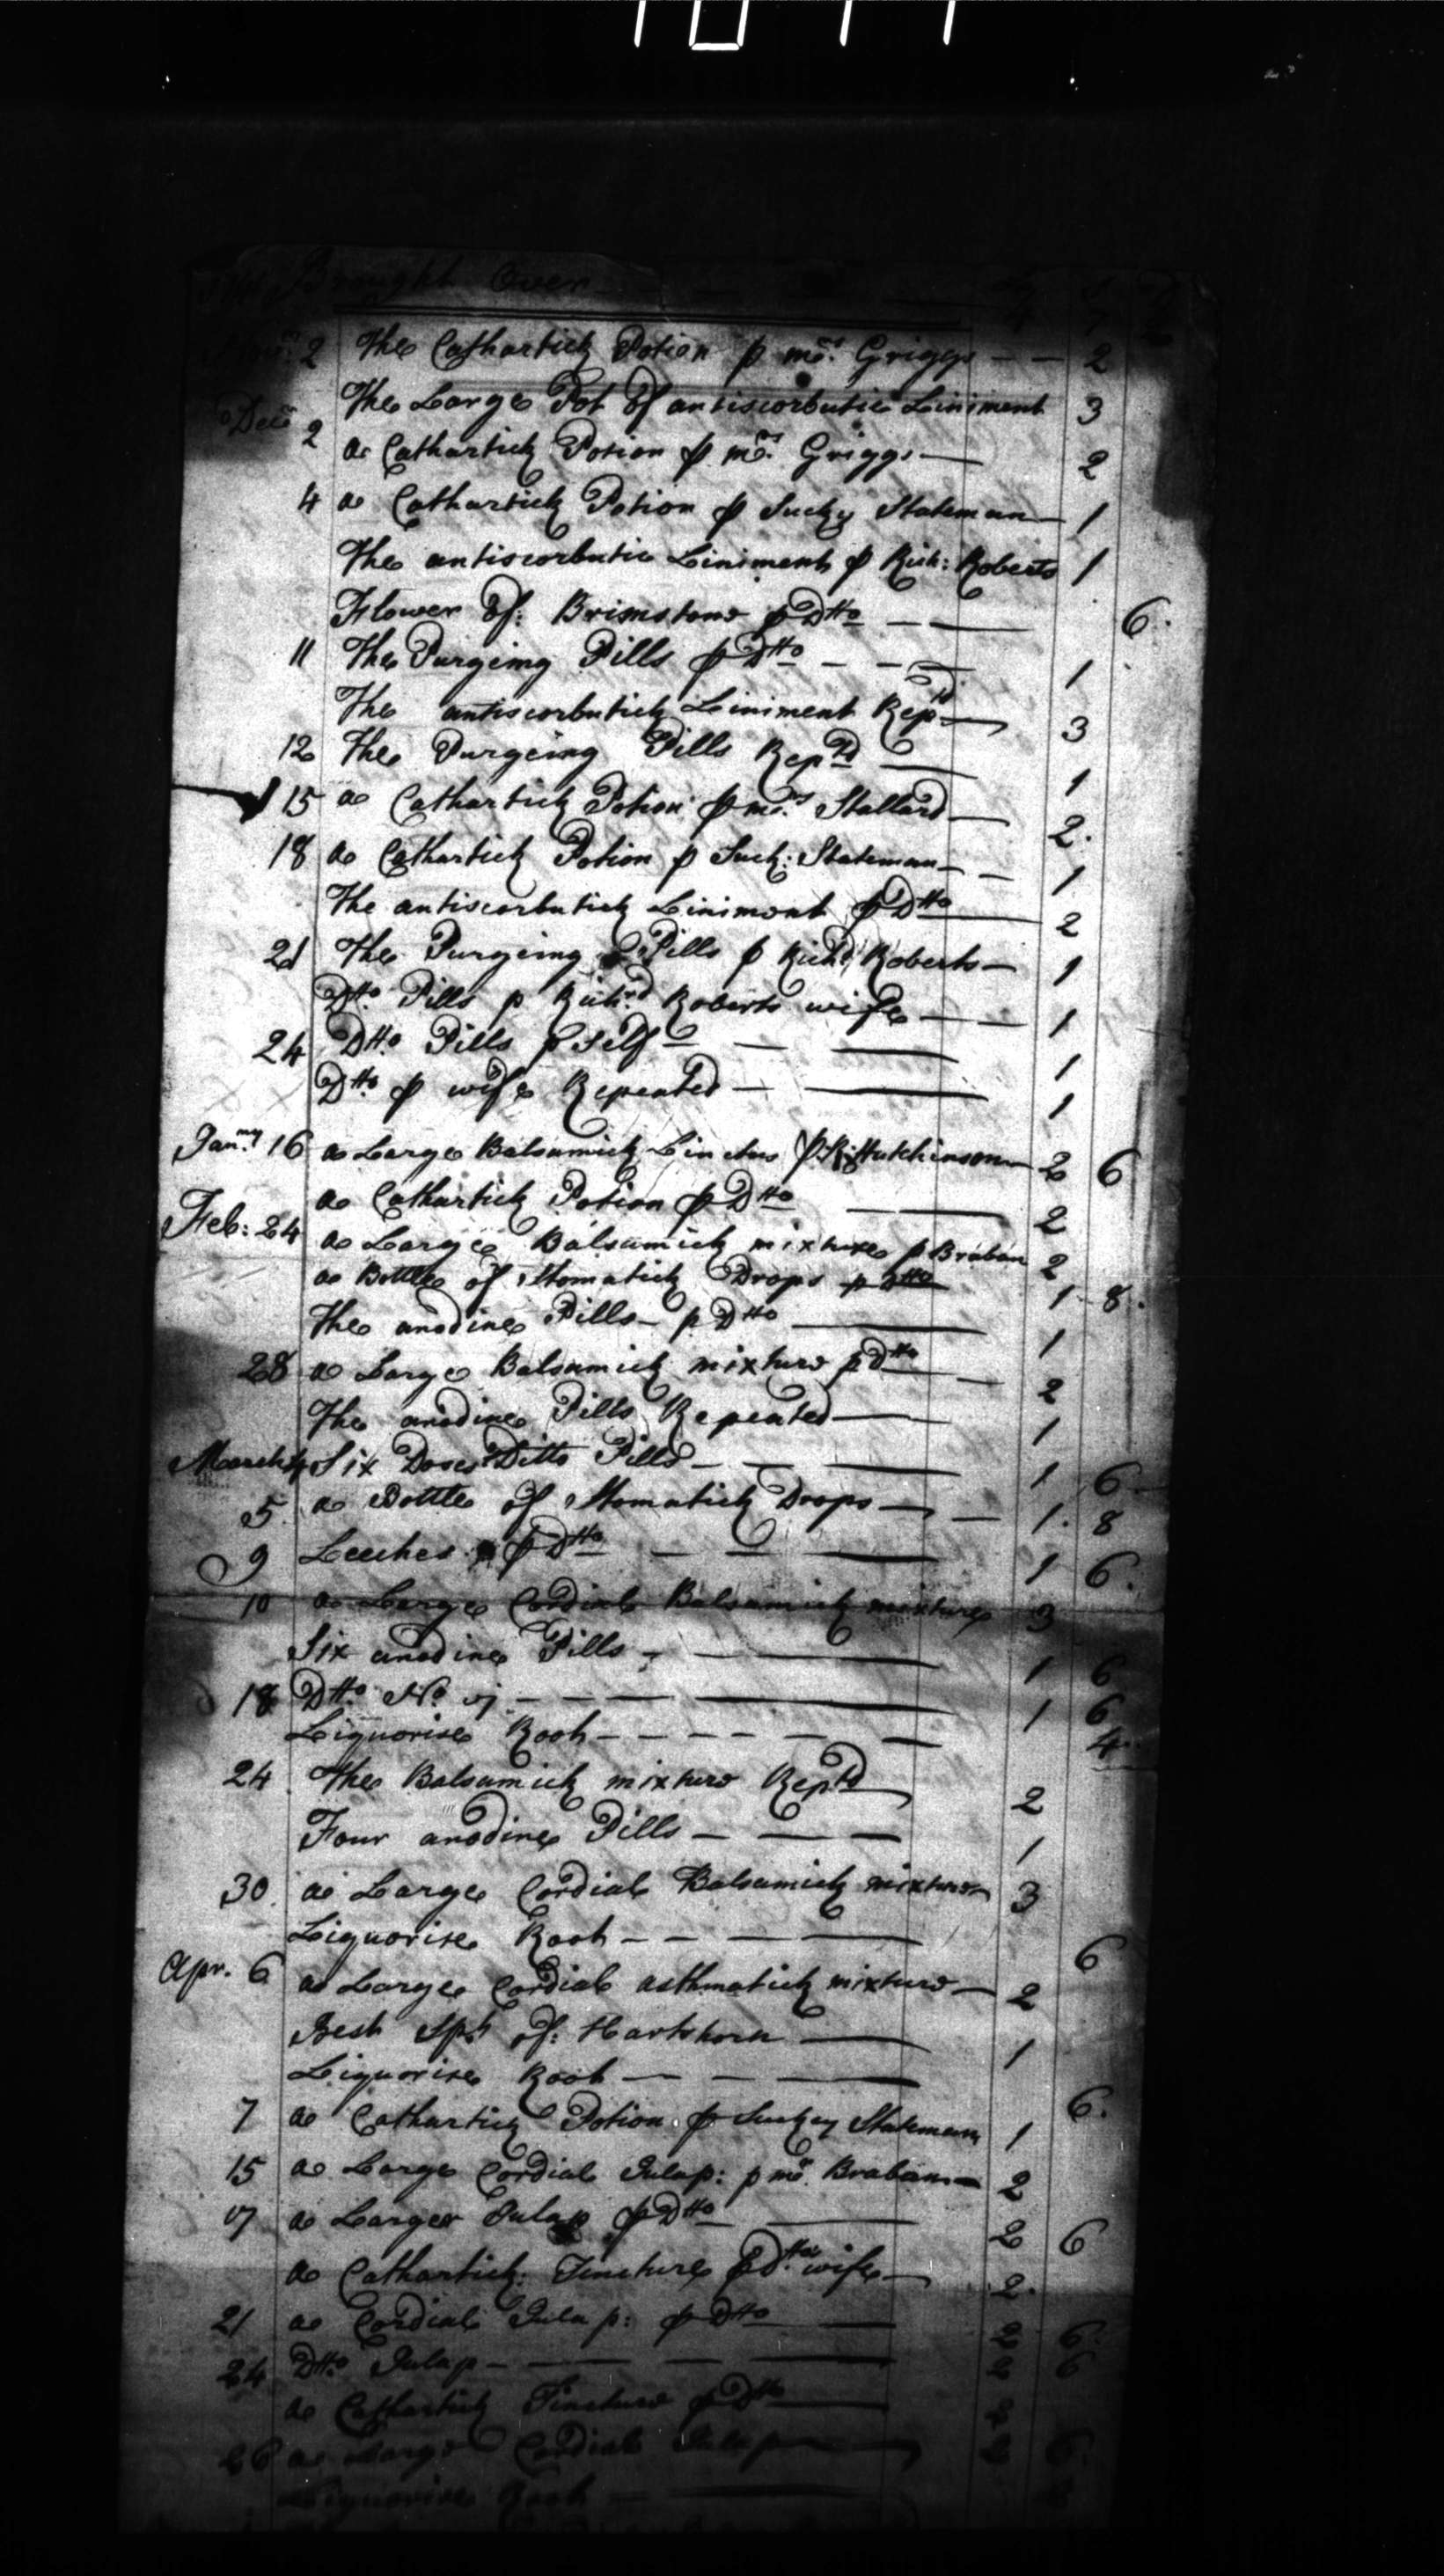 Brought Over
Novr. 2 The Cathartick Potion p mrs. Griggs - - 2
The Large Pot of antiscorbutic Liniment 3
Decr. 2 a Cathartick Potion p mrs. Griggs — 2
4 a Cathartick Potion p Sucky Stateman — 1
The antiscorbutic Liniment p Rich: Roberts 1
Flower of: Brimstone p Dtto — — 6.
11 The Purgeing Pills p Dtto - - — 1
The antiscorbutick Liniment Repd — 3
12 The Purgeing Pills Repd — 1
15 a Cathartick Potion p mrs Stallard — 2.
18 a Cathartick Potion p Suck: Stateman — 1
The antiscorbutick Liniment p Dtto — 2
21 The Purgeing Pills p Richd Roberts — 1
Dtto. Pills p Richrd Roberts wife — — 1
24 Dtto. Pills p Self — — — 1
Dtto p wife Repeated — — 1
Janry 16 a Large Balsamick Linctus p Hutchinson — 2 6
a Cathartick Potion p Dtto — — 2
Feb: 24 a Large Balsamick mixture p Braban 2
a Bottle of Stomatick Drops p Dtto 1 8.
The anodine Pills — p Dtto — 1
28 a Large Balsamick mixture p Dtto — 2
The anodine Pills Repeated — 1
March 4 Six Doses Ditto Pills — — — 1 6
5 a Bottle of Stomatick Drops — — 1. 8
9 Leeches p Dtto — — — 1 6.
10 a Large Cordial Balsamick mixture 3
Six anodine Pills - — 1 6
18 Dtto. No. vj - - — — 1 6
Liquorise Root - - - - - — 4.
24 The Balsamick mixture Reptd 2
Four anodine Pills — — — 1
30 a Large Cordial Balsamick mixture 3
Liquorise Root - - — — 6
Apr. 6 a Large Cordial asthmatick mixture — 2
Best Spt of: Hartshorn — 1
Liquorise Root — - — 6.
7 a Cathartick Potion p Suckey Stateman 1
15 a Large Cordial Julap: p mr. Braban — 2
17 a Larger Julap p Dtto — 2 6
a Cathartick: Tincture p Dtto. wife — 2.
21 a Cordial Julap: p Dtto — 2 6.
24 Dtto. Julap — — — — 2 6
a Cathartick Tincture p Dtto — 2
26 a Large Cordial Julap — 2 6.
Liquorise Root — —